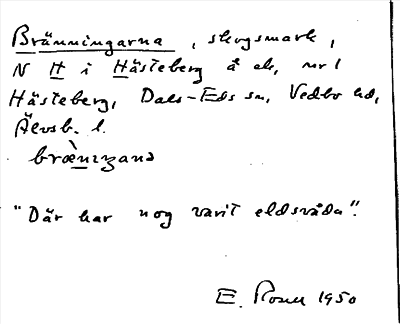 Bränningarna, skogsmark,
N H i Hästeberg å ek, nr 1
Hästeberg, Dals-Eds sn, Vedbo hd,
Älvsb. l.
bræ̀nıŋana
"Där har nog varit eldsvåda".
E. 1950